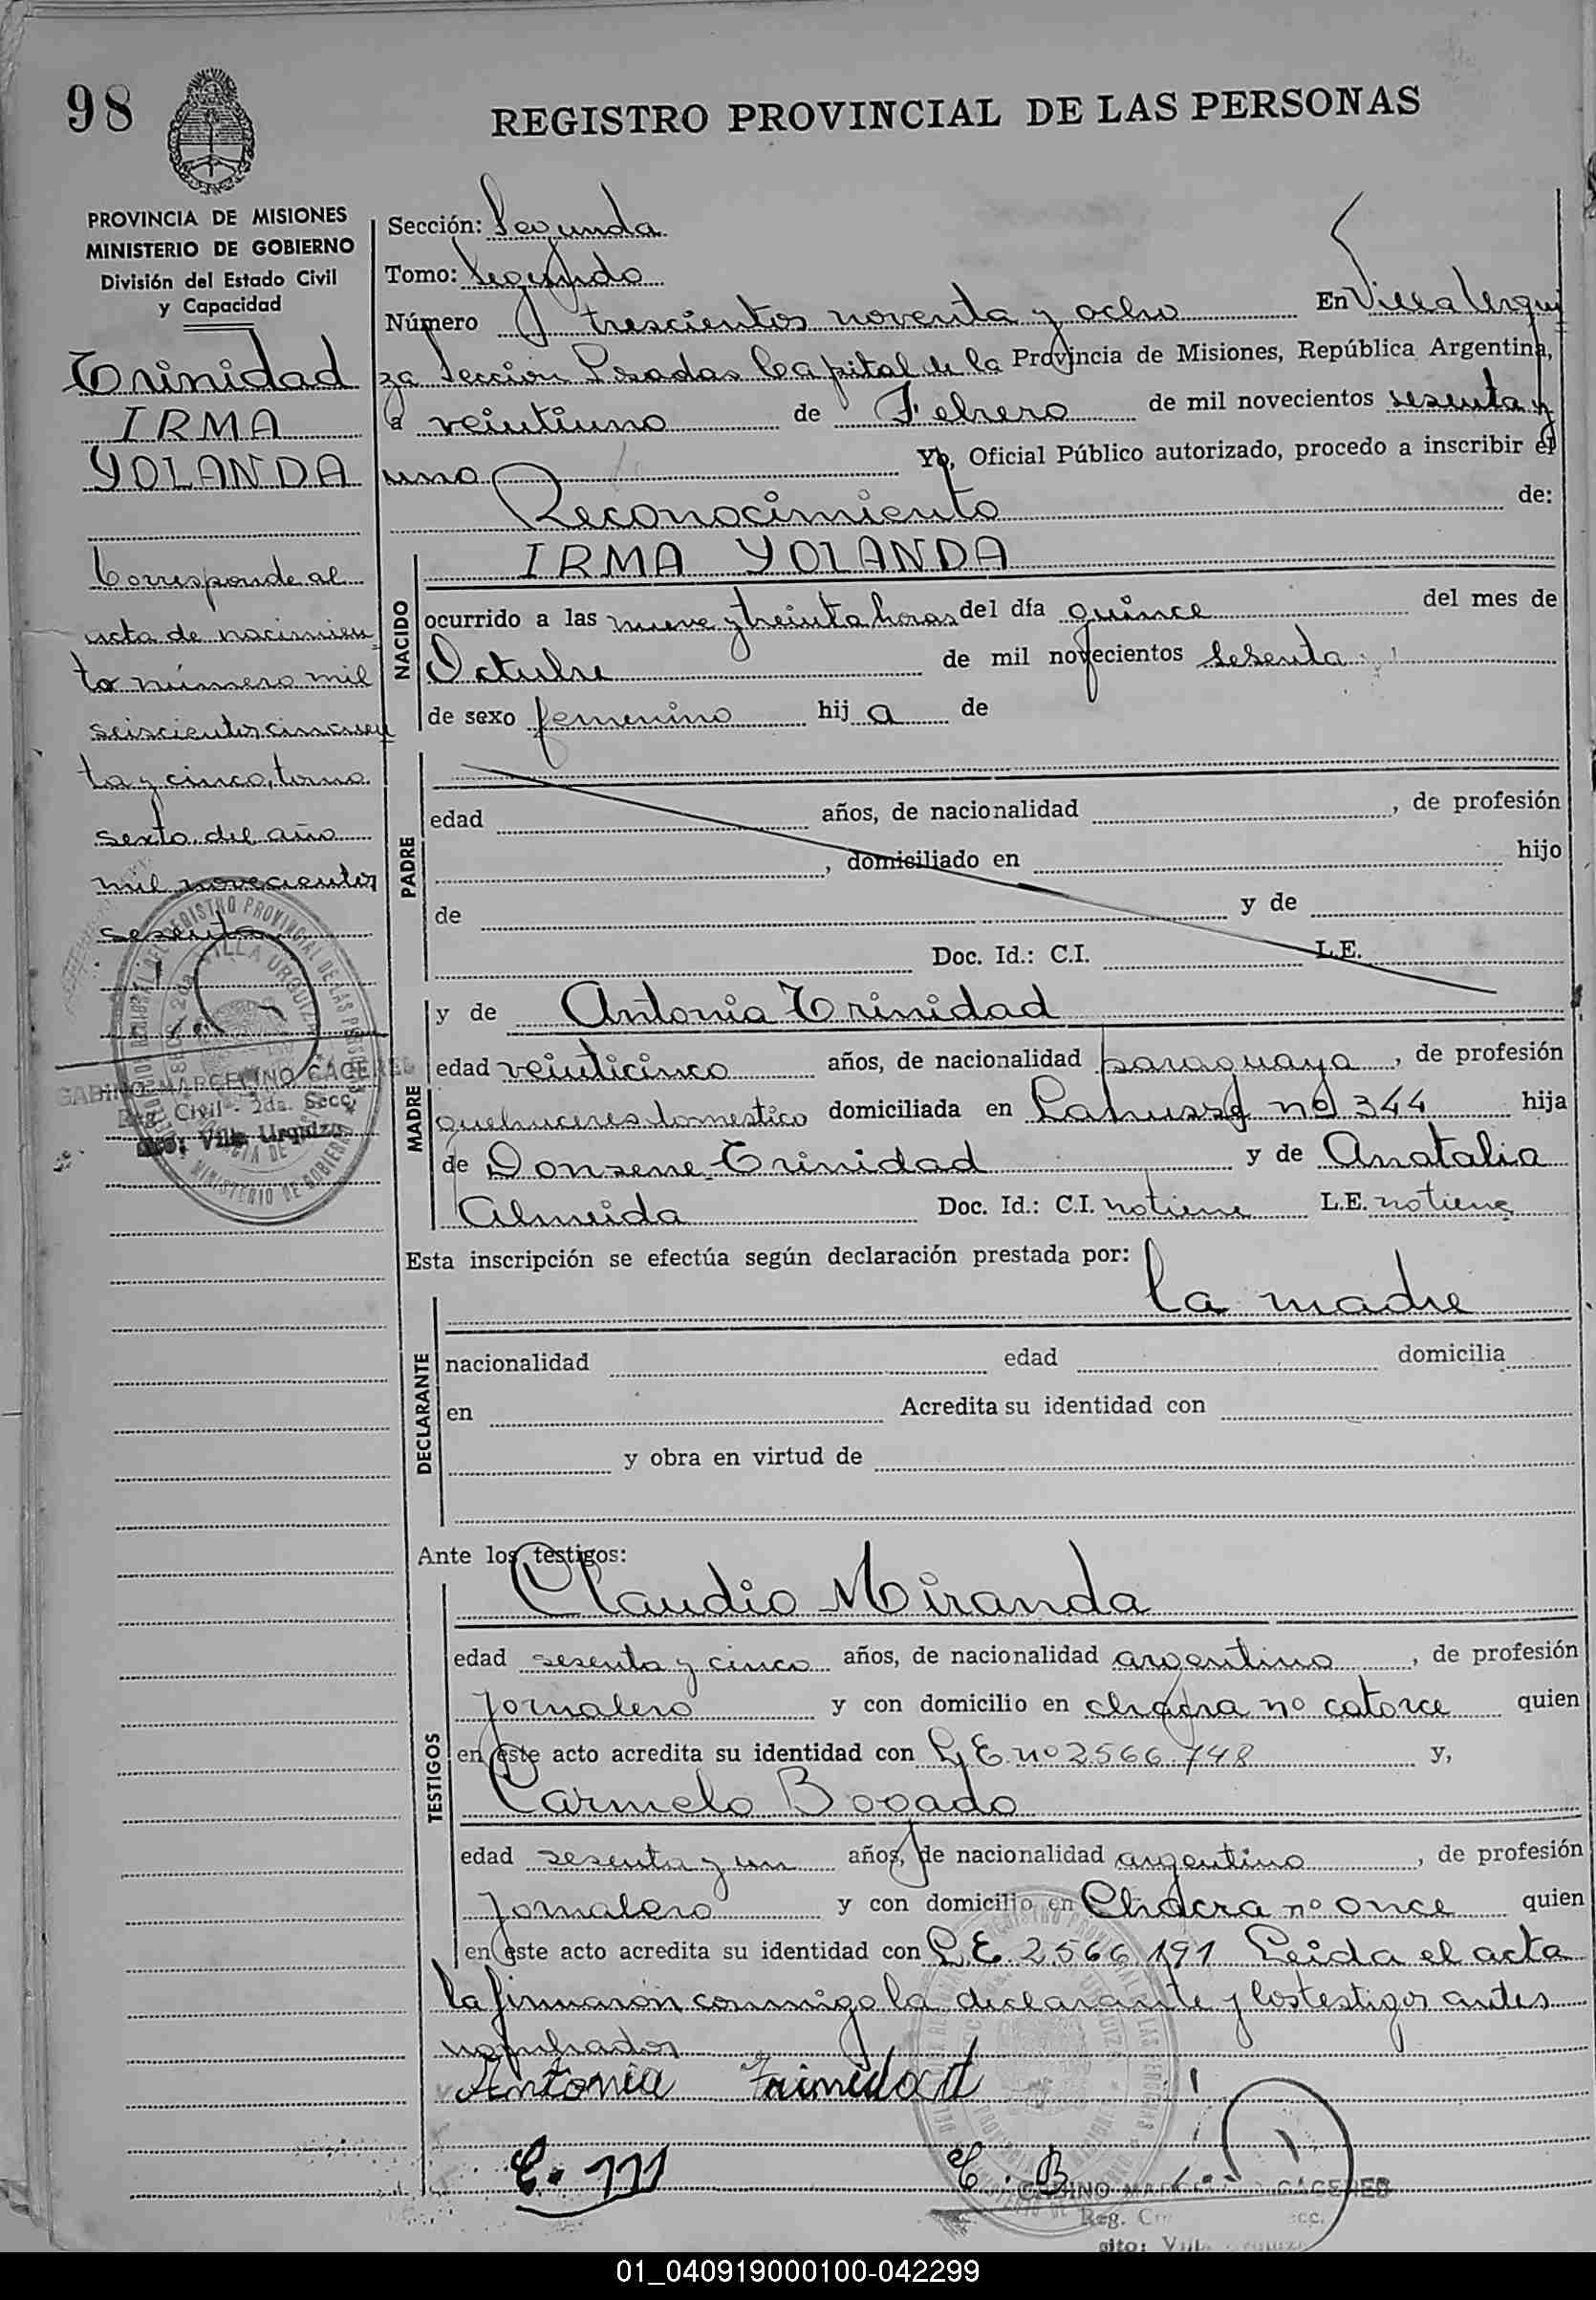 98
REGISTRO PROVINCIAL DE LAS PERSONAS
PROVINCIA DE MISIONES
MINISTERIO DE GOBIERNO
División del Estado Civil
y Capacidad
Trinidad
IRMA
YOLANDA
Corresponde al
acta de nacimien
to número mil
seiscientos cincuen
ta y cinco, tomo
sexto del año
mil novecientos
sesenta
GABINO MARCELINO CACERES
Reg. Civil - 2da. Secc.
sito: Villa Urquiza
Sección: Segunda
Tomo: Segundo
Número trescientos noventa y ocho En Villa Urqui
za Sección Posadas Capital de la Provincia de Misiones, República Argentina,
a veintiuno de Febrero de mil novecientos sesenta y
uno Yo, Oficial Público autorizado, procedo a inscribir el
Reconocimiento de:
IRMA YOLANDA
NACIDO
ocurrido a las nueve y treinta horas del día quince del mes de
Octubre de mil novecientos sesenta
de sexo femenino hij a de
PADRE
edad años, de nacionalidad , de profesión
, domiciliado en hijo
de y de
Doc. Id.: C.I. L.E.
y de Antonia Trinidad
MADRE
edad veinticinco años, de nacionalidad paraguaya , de profesión
quehaceres domestico domiciliada en nº 344 hija
de Trinidad y de Anatalia
Almeida Doc. Id.: C.I. no tiene L.E. no tiene
Esta inscripción se efectúa según declaración prestada por:
la madre
DECLARANTE
nacionalidad edad domicilia
en Acredita su identidad con
y obra en virtud de
Ante los testigos:
Claudio Miranda
TESTIGOS
edad sesenta y cinco años, de nacionalidad argentino , de profesión
Jornalero y con domicilio en chacra nº catorce quien
en este acto acredita su identidad con L.E. nº 2.566.748 y,
Carmelo Bogado
edad sesenta y un años, de nacionalidad argentino , de profesión
Jornalero y con domicilio en Chacra nº once quien
en este acto acredita su identidad con L.E. 2.566.191 Leida el acta
la firmarón conmigo la declarante y los testigos antes
nombrados
Antonia Trinidad
C. M C. B
GABINO MARCELINO CACERES
Reg. Civil
sito: Villa Urquiza
01_040919000100-042299